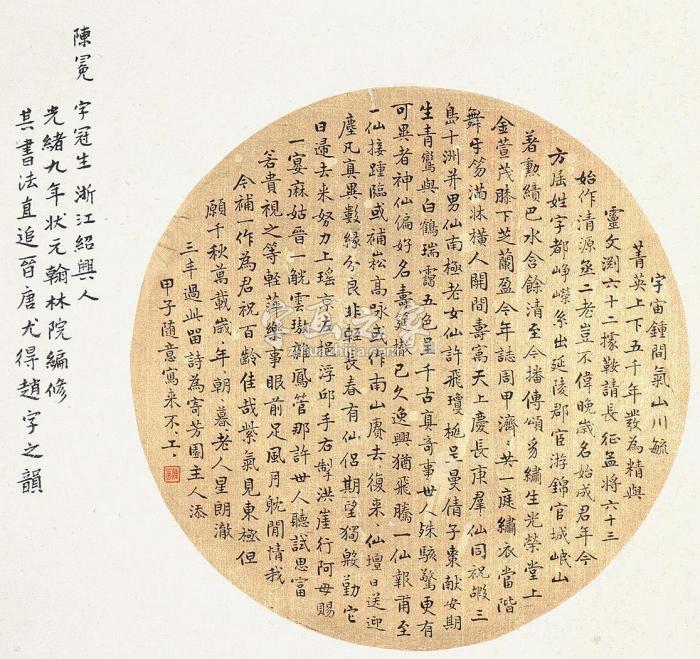 宇宙鍾間氣山川毓
菁英上下五千年發為精與
靈文渕六十二據鞍請長征孟將六十三
始作清源丞二老豈不偉晚歲名始成君年今
方屈姓字都崢嶸系出延陵郡官游錦官城岷山
著勳績巴水含餘清至今播傳頌豸繡生光榮堂上
金萱茂膝下芝蘭盈今年誌周甲濟〻共一庭繡衣當階
舞牙笏滿牀橫人開間壽寓天上慶長庚羣仙同祝嘏三
島十洲并男仙南極老女仙許飛瓊是曼倩子棗献安期
生青鸞與白鶴瑞靄五色呈千古真奇事世人殊駭驚更有
可異者神仙偏好名壽筵撤已久逸興猶飛騰一仙報甫至
一仙接踵臨或補崧高咏或作南山賡去復来仙壇日送迎
塵凡真異數緣分良非輕長春有仙侶期望獨殷勤它
日歸去来努力上瑶京左挹浮邱手右掣洪崖行阿母賜
一宴麻姑晉一觥雲璈雜鳳管那許世人聽試思富
若貴視之等輕萍樂事眼前足風月耽閒情我
今補一作為君祝百齡佳哉紫氣見東極但
願千秋萬載歲、年、朝、暮、老人星朗澈
三丰過此留詩為寄芳園主人添
甲子隨意寫来不工、
陳冕 字冠生 浙江紹興人
光緒九年狀元翰林院編修
其書法直追晉唐尤得趙字之韻